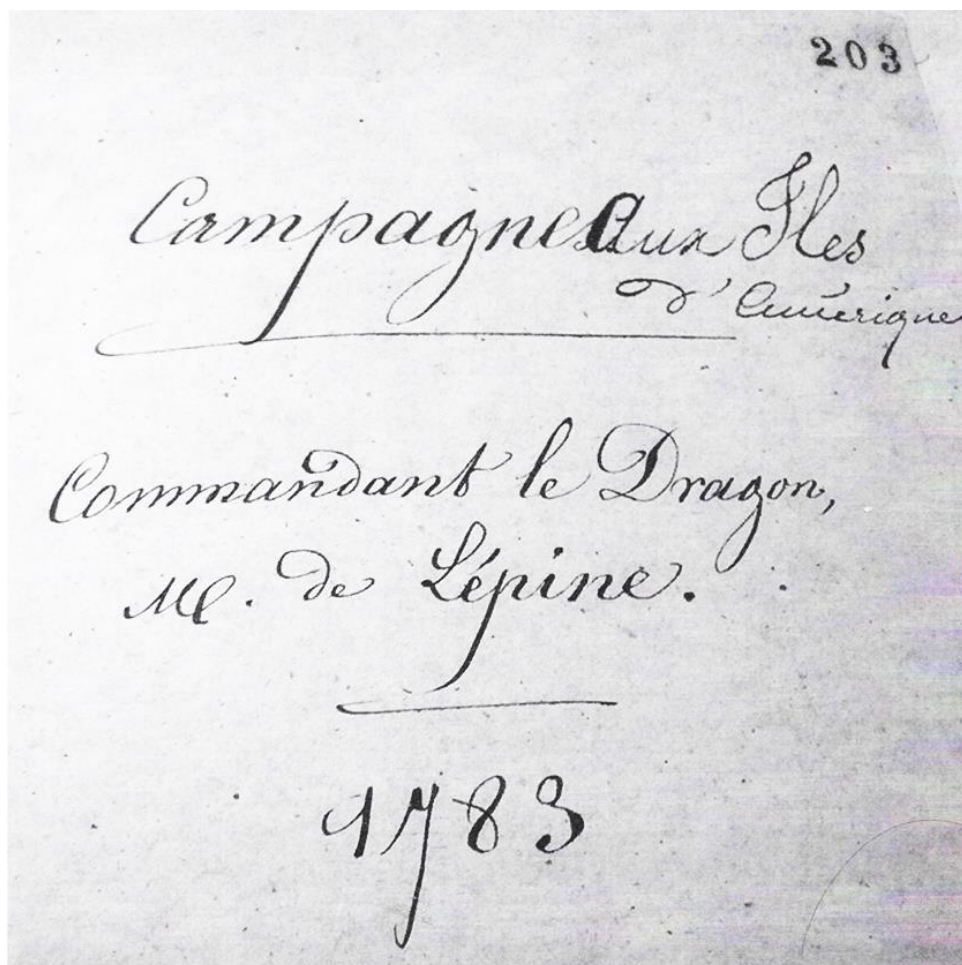 203
Campagne Aux Iles
d'Amérique
Commandant le Dragon,
M. de Lépine.
1783